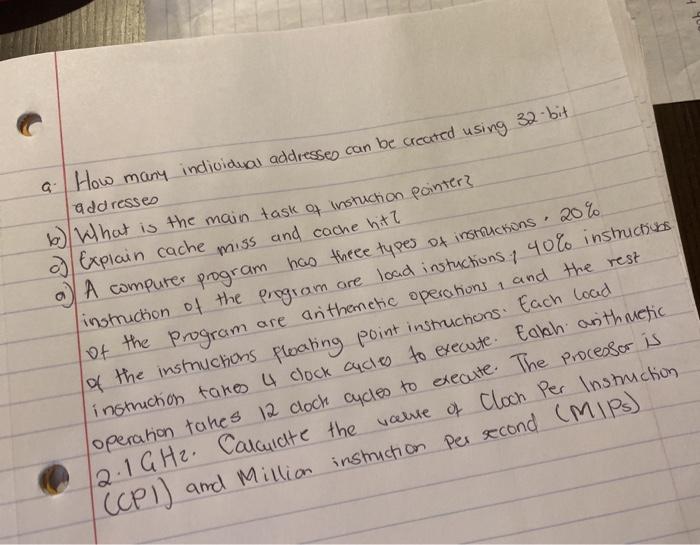 a. How many individual addresses can be created using 32-bit
addresses
b) What is the main task of instuction pointer?
c) Explain cache miss and cache hit?
a) A computer program has three types of instructions, 20%
instruction of the program are load instuctions, 40% instructions
of the program are arithemetic operations, and the rest
of the instructions floating point instructions. Each load
instruction takes 4 clock cycles to execute. Eakh arithmetic
operation takes 12 clock cycles to execute. The processor is
2.1 GHz. Calculate the value of Clock Per Instruction
(CPI) and Million instruction per second (MIPs)